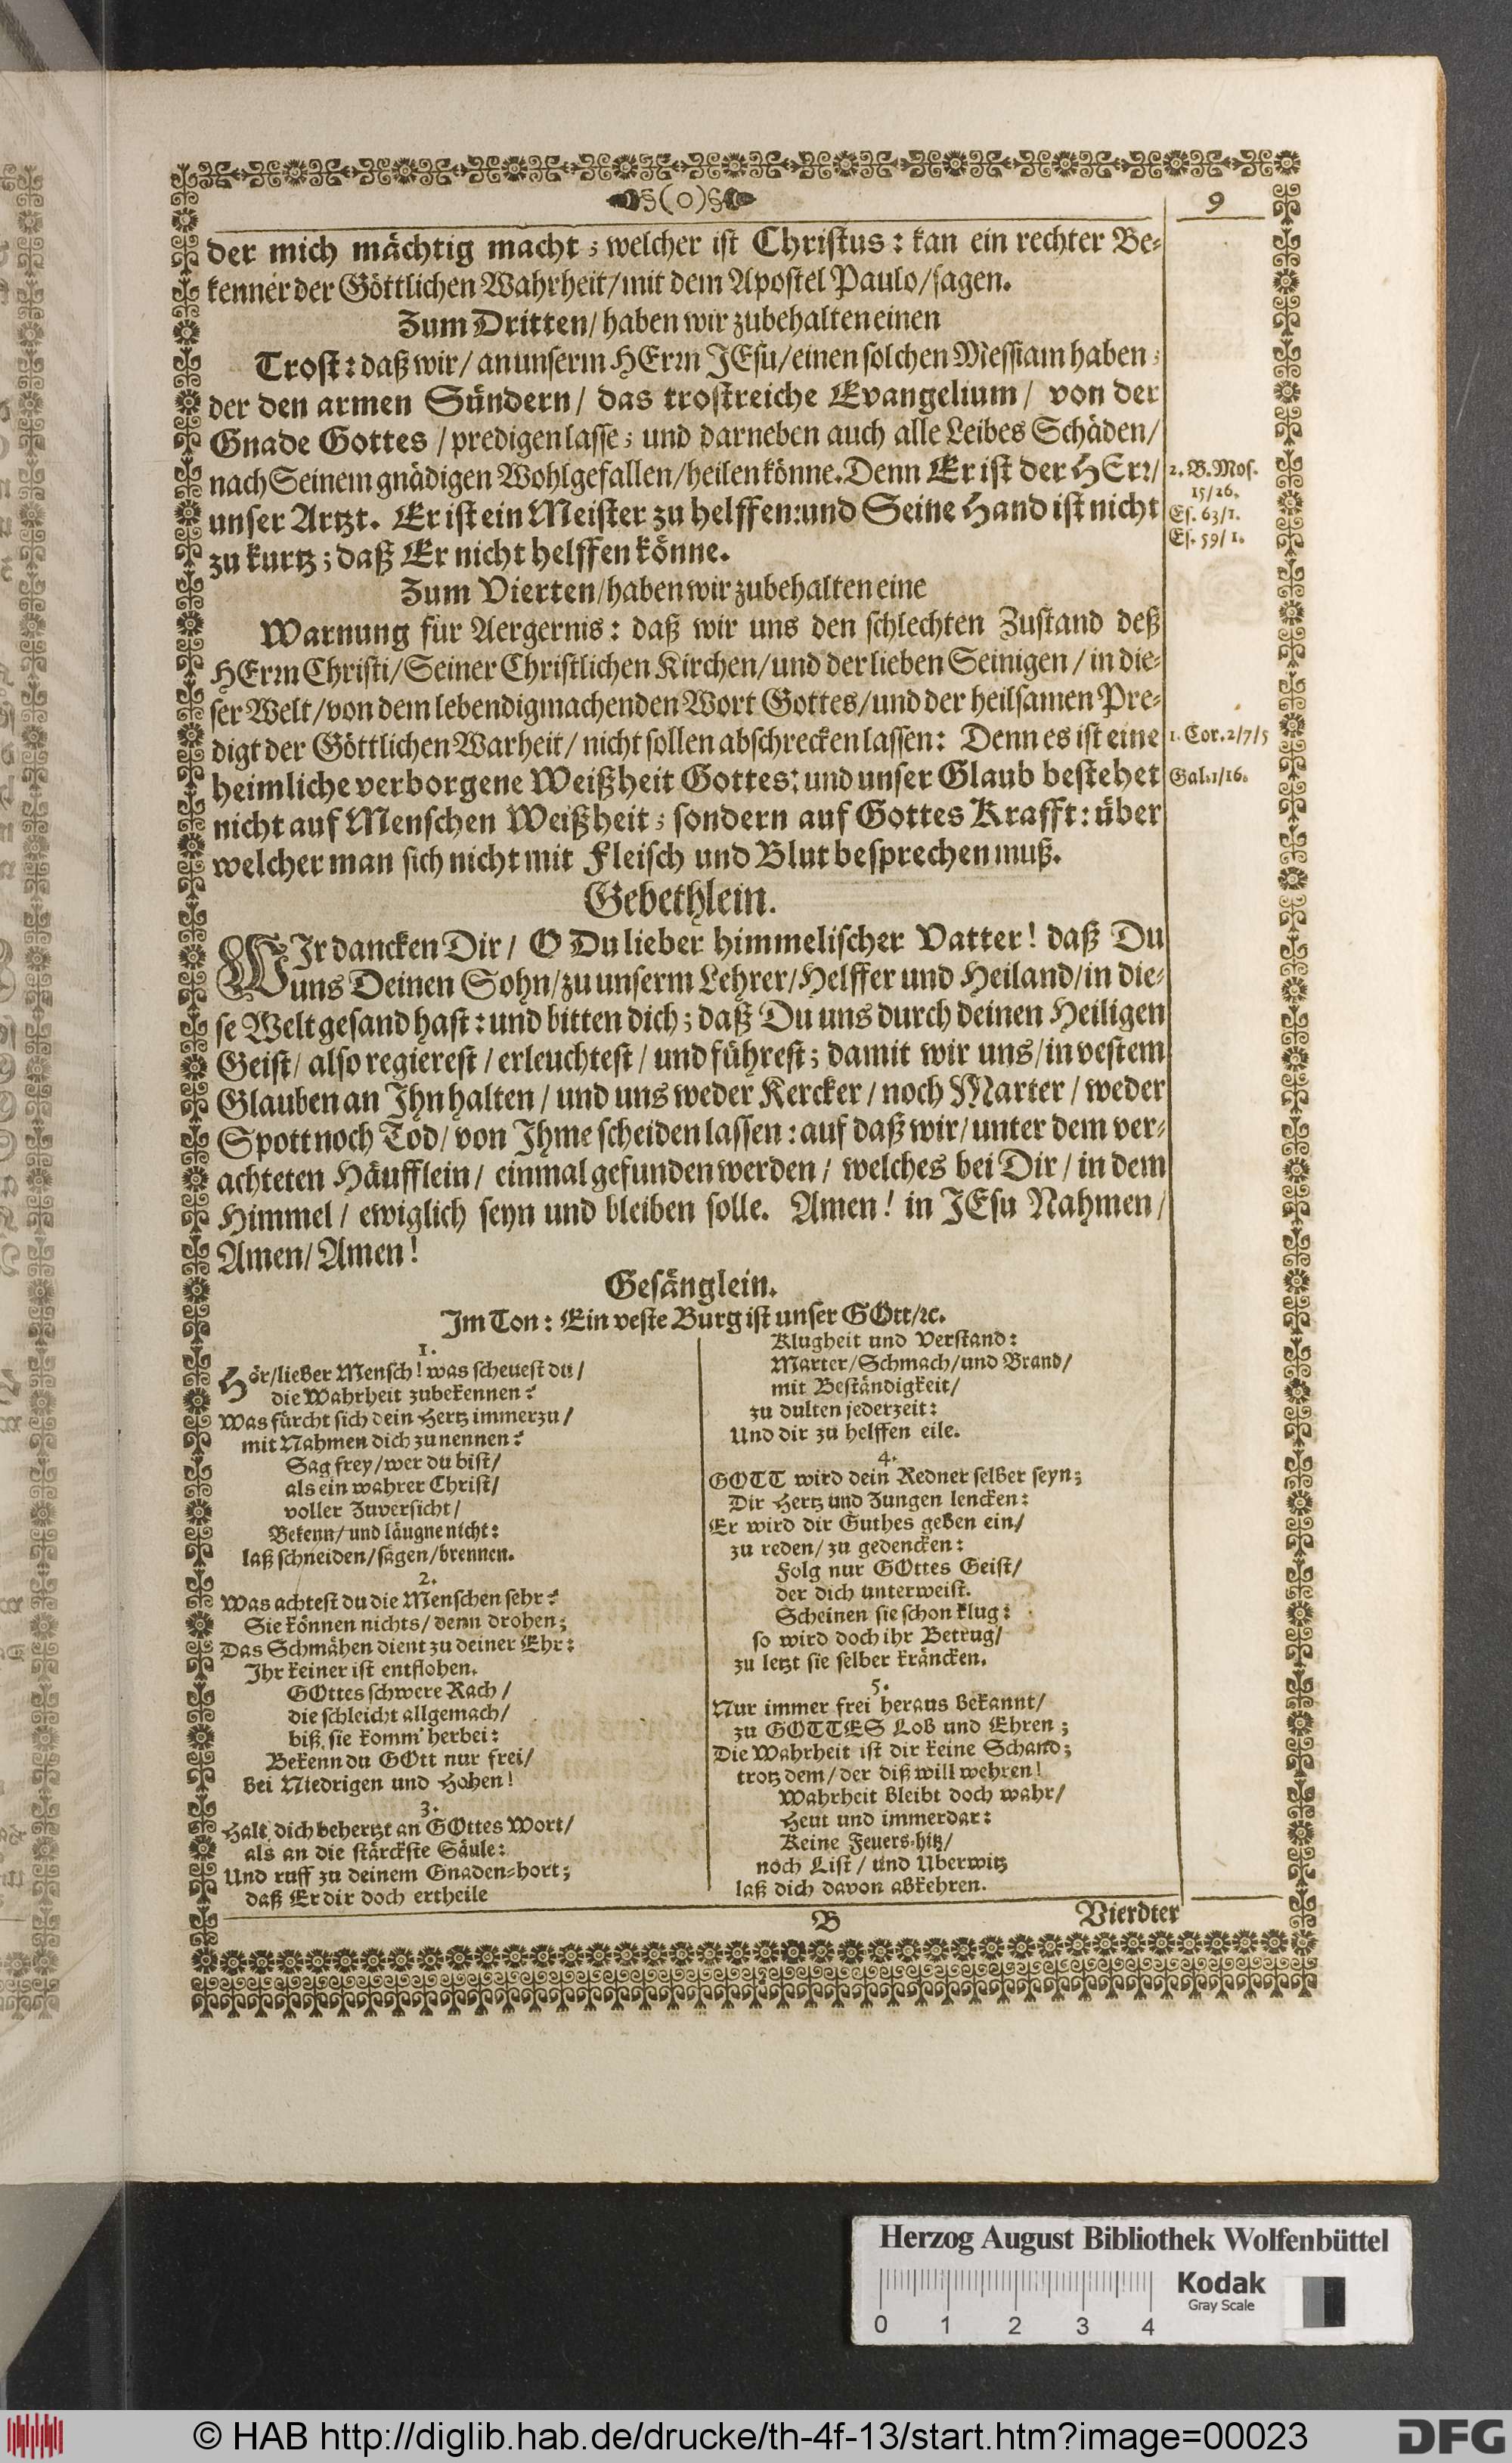 §(O)§
9
der mich mächtig macht; welcher ist Christus: kan ein rechter Be-
kenner der Göttlichen Wahrheit/ mit dem Apostel Paulo/ sagen.
Zum Dritten/ haben wir zubehalten einen
Trost: daß wir/ an unserm HErrn JEsu/ einen solchen Messiam haben;
der den armen Sündern/ das trostreiche Evangelium/ von der
Gnade Gottes / predigen lasse; und darneben auch alle Leibes Schäden/
nach Seinem gnädigen Wohlgefallen/ heilen könne. Denn Er ist der HErr/
2. B. Mos.
15/26.
unser Artzt. Er ist ein Meister zu helffen: und Seine Hand ist nicht
Es. 63/1.
Es. 59/1.
zu kurtz; daß Er nicht helffen könne.
Zum Vierten/ haben wir zubehalten eine
Warnung für Aergernis: daß wir uns den schlechten Zustand deß
HErrn Christi/ Seiner Christlichen Kirchen/ und der lieben Seinigen/ in die-
ser Welt/ von dem lebendigmachenden Wort Gottes/ und der heilsamen Pre-
digt der Göttlichen Warheit/ nicht sollen abschrecken lassen: Denn es ist eine
1. Cor. 2/7/5
heimliche verborgene Weißheit Gottes: und unser Glaub bestehet
Gal. 1/16.
nicht auf Menschen Weißheit; sondern auf Gottes Krafft: über
welcher man sich nicht mit Fleisch und Blut besprechen muß.
Gebethlein.
WIr dancken Dir/ O Du lieber himmelischer Vatter! daß Du
uns Deinen Sohn/ zu unserm Lehrer/ Helffer und Heiland/ in die-
se Welt gesand hast: und bitten dich; daß Du uns durch deinen Heiligen
Geist/ also regierest / erleuchtest / und führest; damit wir uns/ in vestem
Glauben an Ihn halten / und uns weder Kercker / noch Marter / weder
Spott noch Tod/ von Ihme scheiden lassen: auf daß wir/ unter dem ver-
achteten Häufflein/ einmal gefunden werden/ welches bei Dir/ in dem
Himmel/ ewiglich seyn und bleiben solle. Amen! in JEsu Nahmen/
Amen/ Amen!
Gesänglein.
Im Ton: Ein veste Burg ist unser GOtt/ ꝛc.
1.
Hör/ lieber Mensch! was scheuest du/
die Wahrheit zubekennen?
Was fürcht sich dein Hertz immerzu/
mit Nahmen dich zunennen?
Sag frey/ wer du bist/
als ein wahrer Christ/
voller Zuversicht/
Bekenn/ und läugne nicht:
laß schneiden/ sägen/ brennen.
2.
Was achtest du die Menschen sehr?
Sie können nichts/ denn drohen;
Das Schmähen dient zu deiner Ehr:
Ihr keiner ist entflohen.
GOttes schwere Rach/
die schleicht allgemach/
biß sie komm' herbei:
Bekenn du GOtt nur frei/
bei Niedrigen und Hohen!
3.
Halt dich behertzt an GOttes Wort/
als an die stärckste Säule:
Und ruff zu deinem Gnaden-hort;
daß Er dir doch ertheile
Klugheit und Verstand:
Marter/ Schmach/ und Brand/
mit Beständigkeit/
zu dulten jederzeit:
Und dir zu helffen eile.
4.
GOTT wird dein Redner selber seyn;
Dir Hertz und Zungen lencken:
Er wird dir Guthes geben ein/
zu reden/ zu gedencken:
Folg nur GOttes Geist/
der dich unterweist.
Scheinen sie schon klug:
so wird doch ihr Betrug/
zu letzt sie selber kräncken.
5.
Nur immer frei heraus bekannt/
zu GOTTES Lob und Ehren;
Die Wahrheit ist dir keine Schand;
trotz dem/ der diß will wehren!
Wahrheit bleibt doch wahr/
Heut und immerdar:
Keine Feuers-hitz/
noch List/ und Uberwitz
laß dich davon abkehren.
B
Vierdter
Herzog August Bibliothek Wolfenbüttel
Kodak
Gray Scale
0 1 2 3 4
© HAB http://diglib.hab.de/drucke/th-4f-13/start.htm?image=00023
DFG